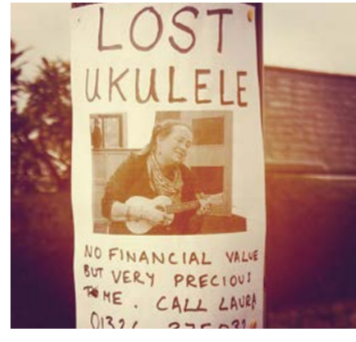 LOST
UKULELE
NO FINANCIAL VALUE
BUT VERY PRECIOUS
TO ME. CALL LAURA